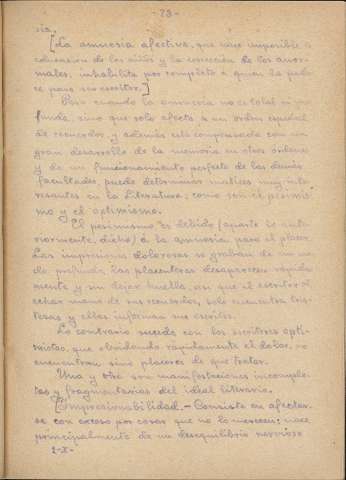 - 73 -
sia.
[La amnesia afectiva, que hace imposible la
educación de los niños y la corrección de los anor-
males, inhabilita por completo á quien la pade-
ce para ser escritor.]
Pero cuando la amnesia no es total ni pro
funda, sino que solo afecta a un orden especial
de recuerdos y además está compensada con un
gran desarrollo de la memoria en otros órdenes
y de un funcionamiento perfecto de las demás
facultades, puede determinar matices muy inte-
resantes en la Literatura, como son el pesimis-
mo y el optimismo.
El pesimismo es debido (aparte lo ante-
riormente dicho) á la amnesia para el placer.
Las impresiones dolorosas se graban de un mo-
do profundo, las placenteras desaparecen rápida-
mente y sin dejar huella, así que el escritor al
echar mano de sus recuerdos, solo encuentra tris-
tezas y ellas informan sus escritos.
Lo contrario sucede con los escritores opti-
mistas, que olvidando rápidamente el dolor, no
encuentran sino placeres de que tratar.
Una y otro son manifestaciones incomple-
tas y fragmentarias del ideal literario.
[Impresionabilidad. - Consiste en afectar-
se con exceso por cosas que no lo merecen; nace
principalmente de un desequilibrio nervioso
1-X-